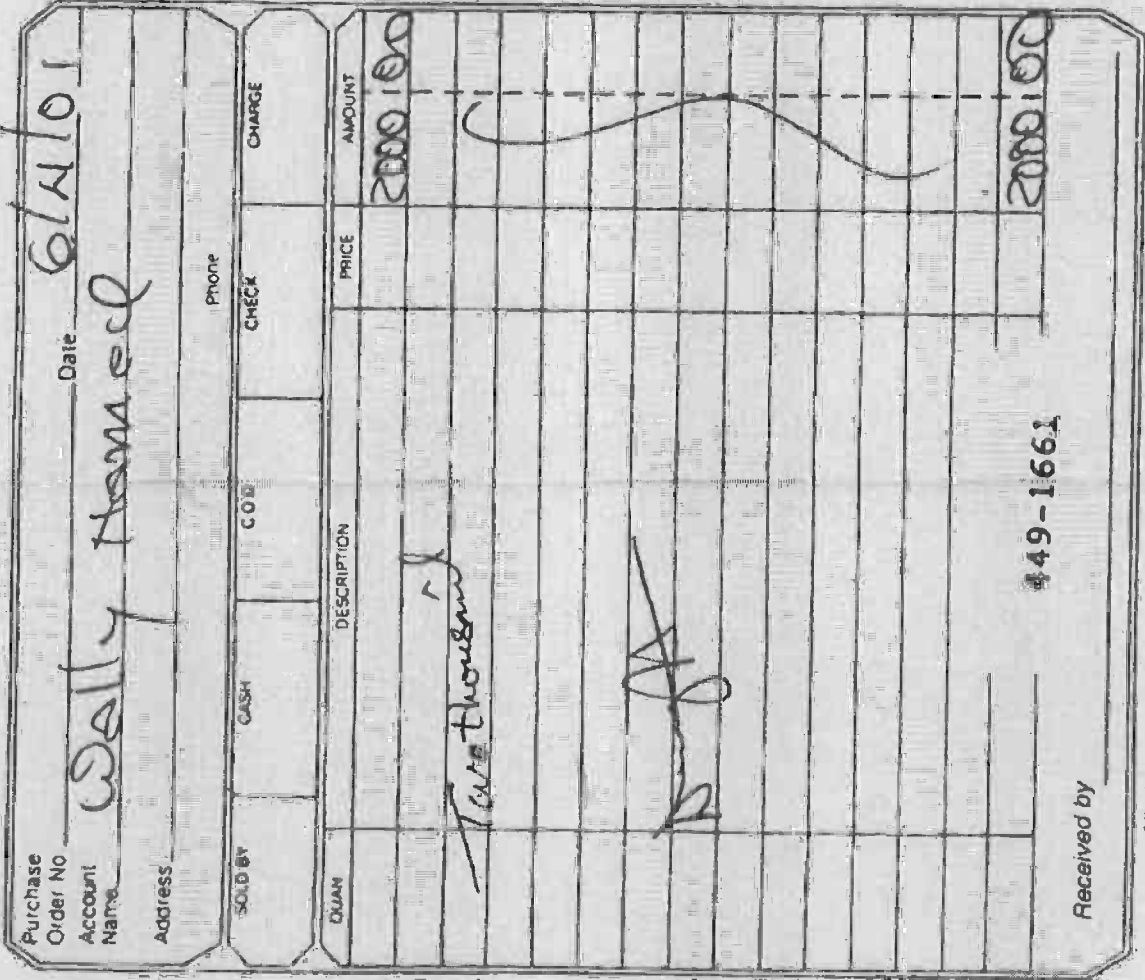 Purchase
Order No. Date 6/4/01
Account
Name Wally Hammed
Address
Phone
SOLD BY CASH C O D CHECK CHARGE
QUAN DESCRIPTION PRICE AMOUNT
2000 00
Two thousand
2000 00
449-1661
Received by